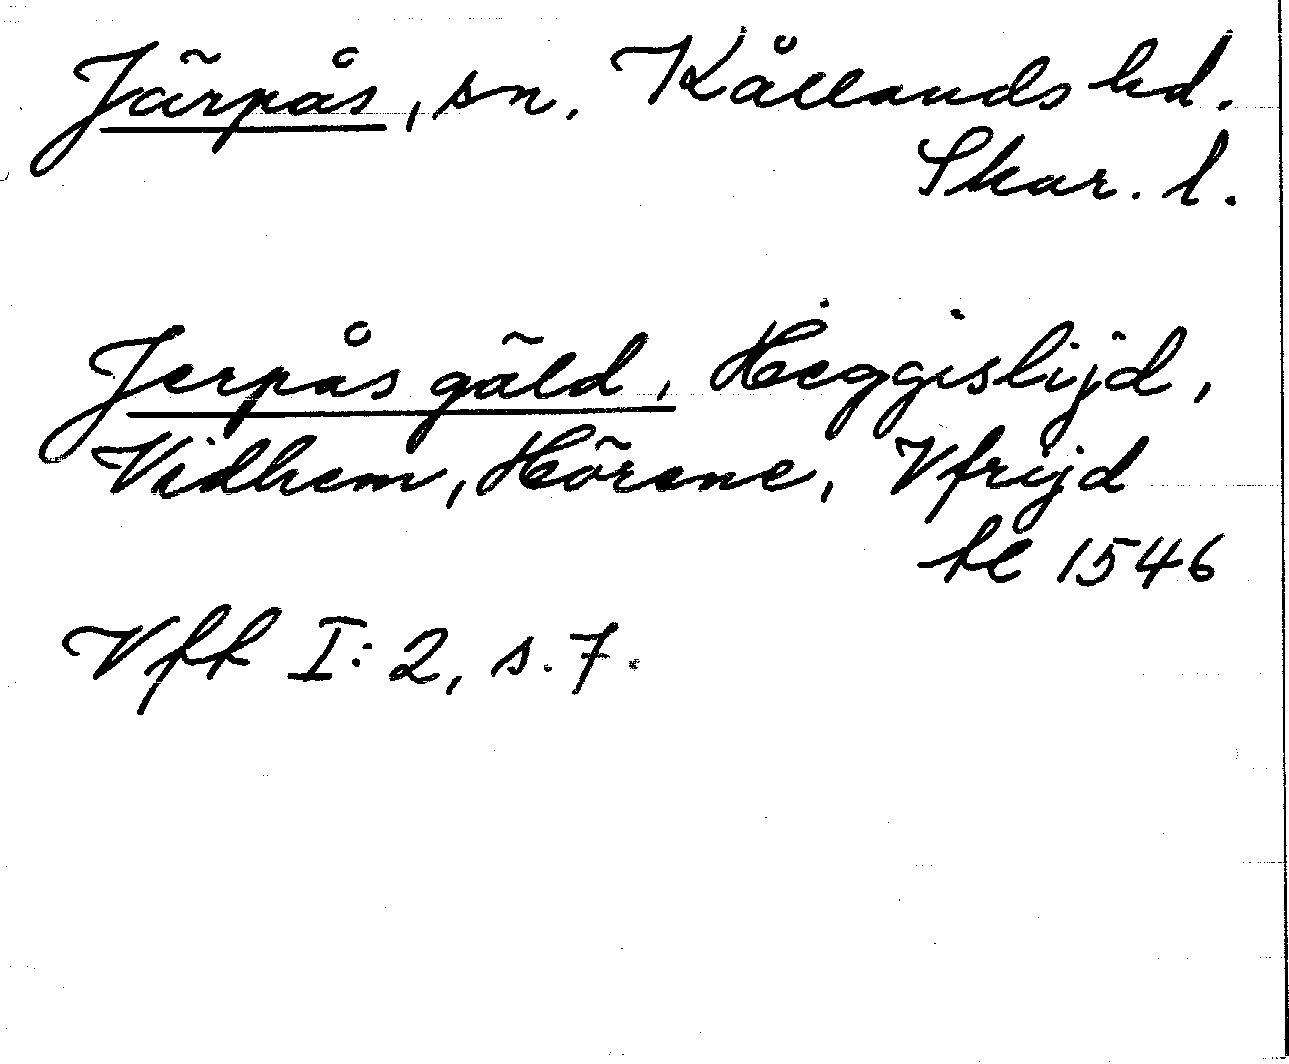 Järpås, sn. Kållands hd.
Skar. l.
Jerpås gäld, Heggislijd,
Vidhem, Hörene, Vfrijd
tl 1546
Vff I:2, s. 7.